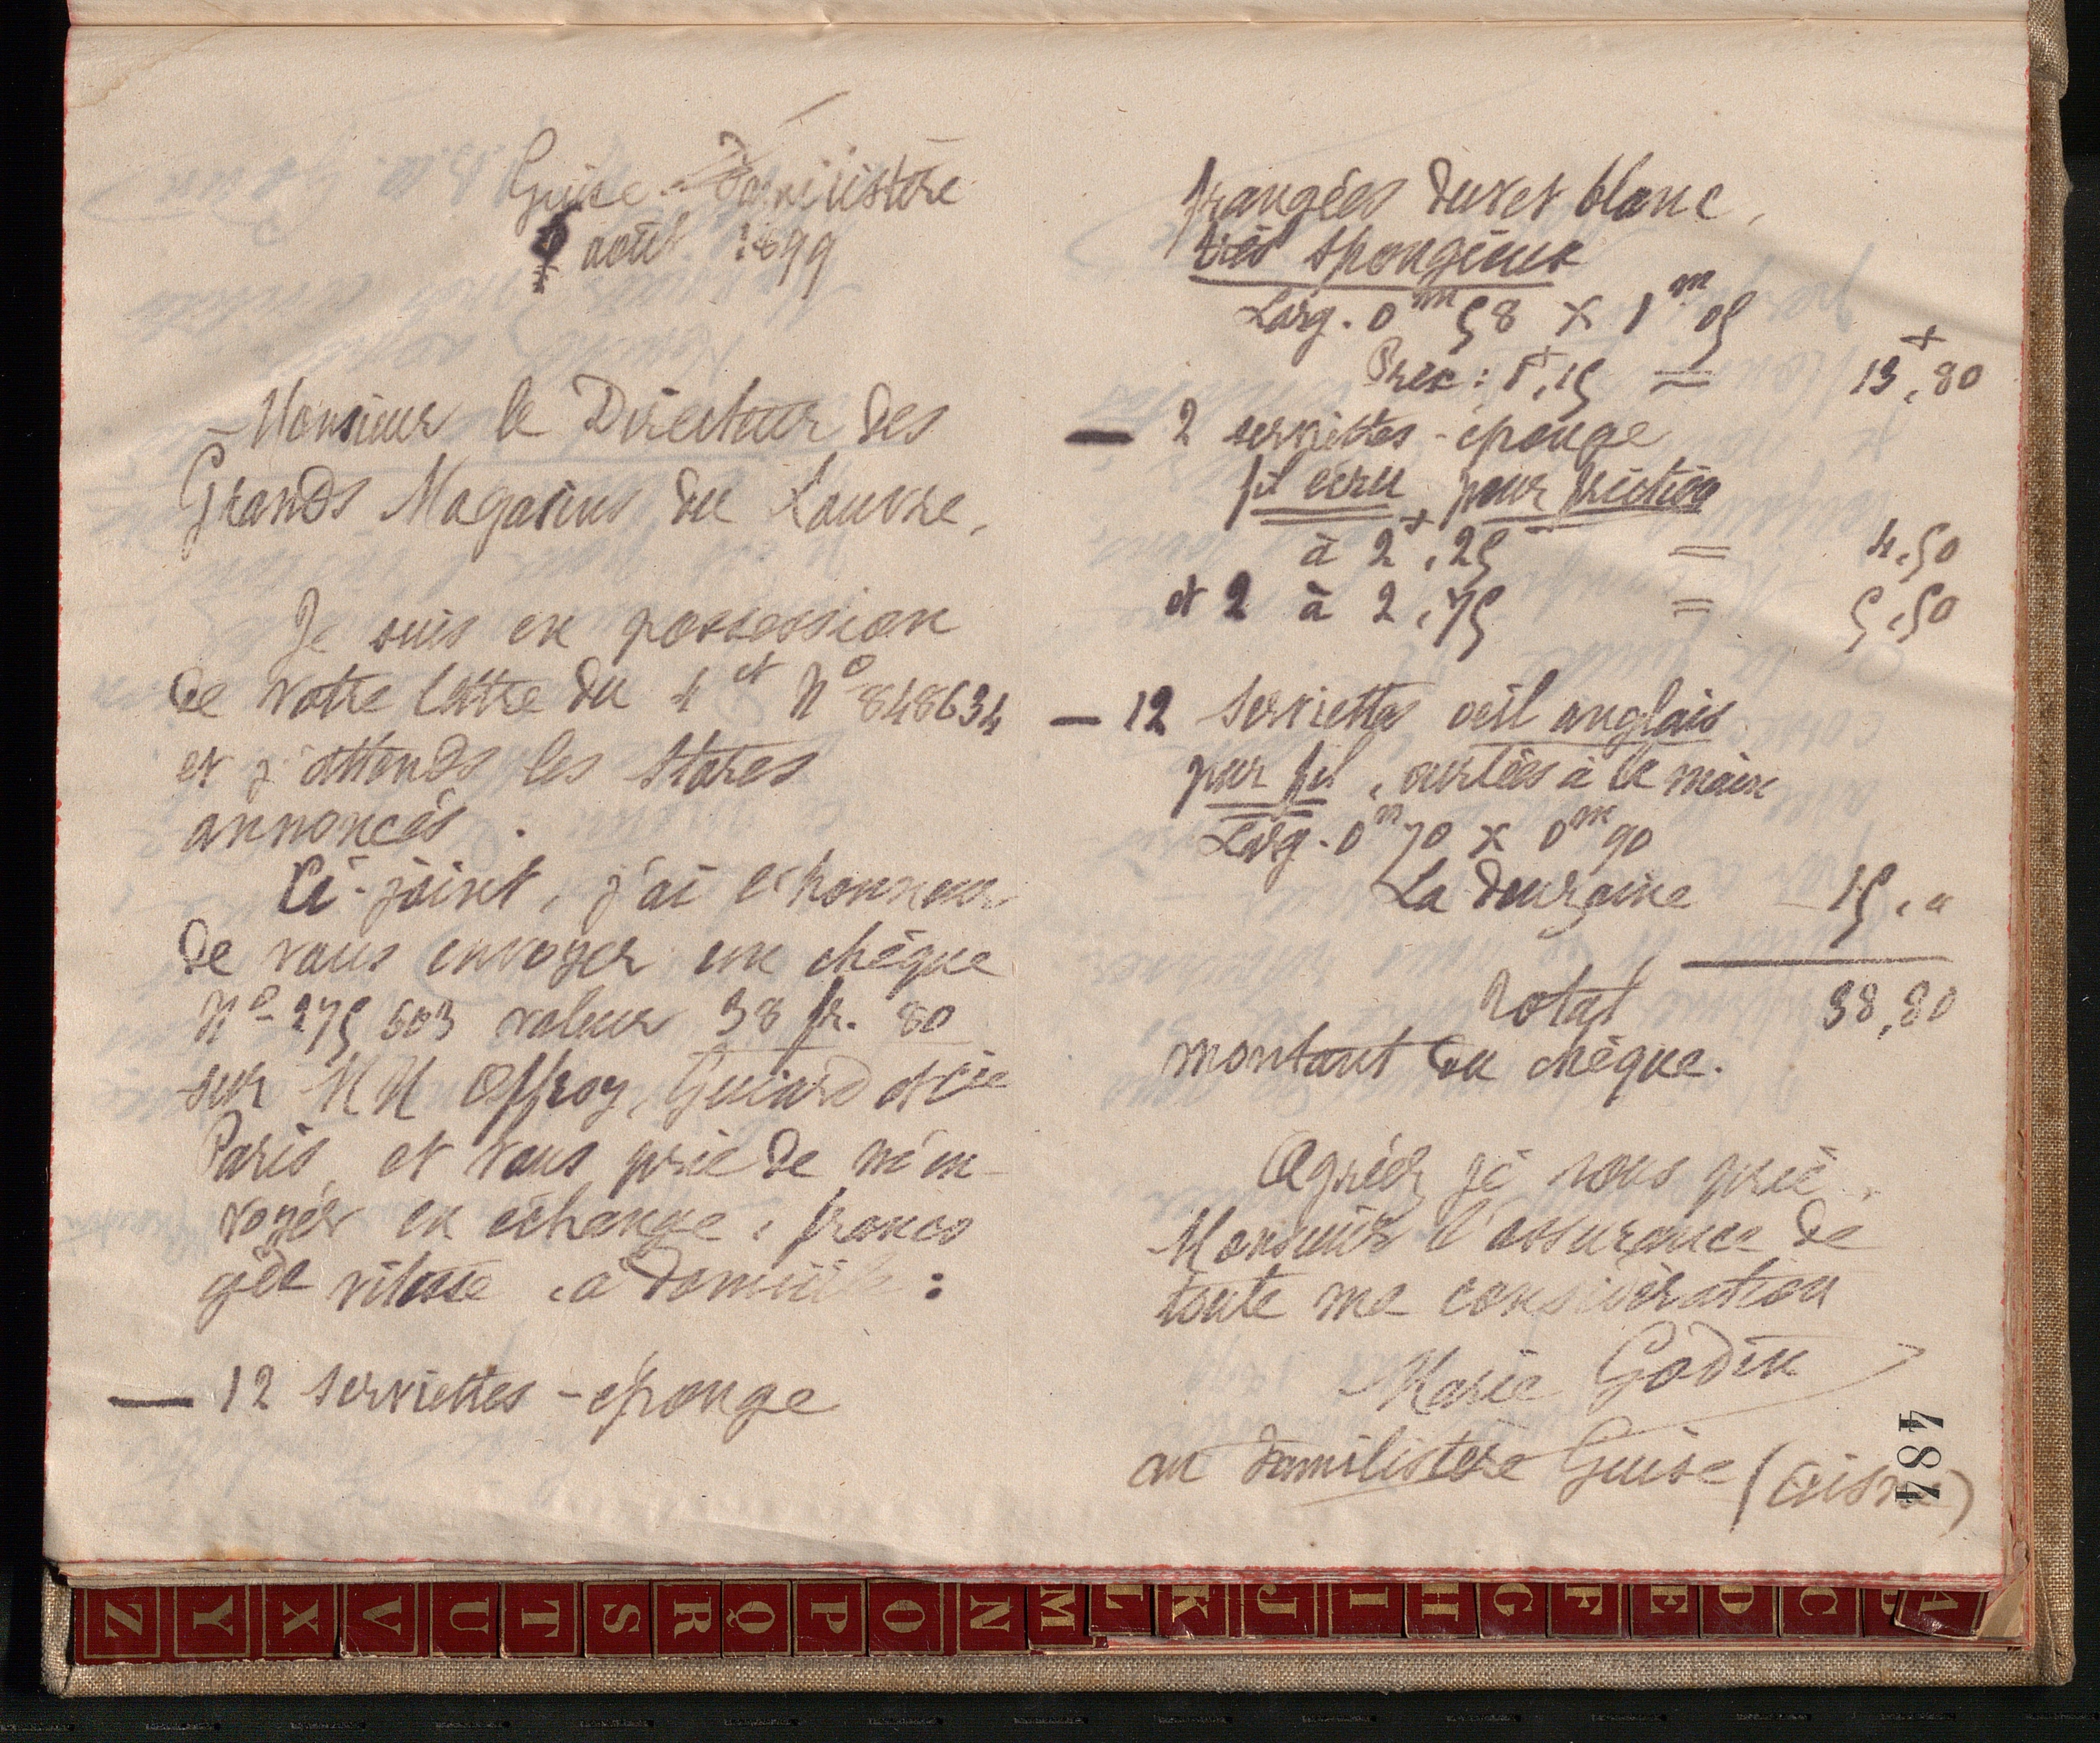 Guise. Familistère
9 août 1899
Monsieur le Directeur des
Grands Magasins du Louvre,
Je suis en possession
de votre lettre du 4 ct Nº 848634
et j'attends les stores
annoncés.
Ci-joint, j'ai l'honneur
de vous envoyer un chèque
Nº 275 503 valeur 38 fr. 80
sur MM Offroy, Guiard et Cie
Paris, et vous prie de m'en-
voyer en échange, franco
gde vitesse, à domicile :
— 12 serviettes-éponge
frangées duvet blanc,
très spongieux
Larg. 0m58 x 1m05
Prix : 1f,15 = 13f,80
— 2 serviettes-éponge
fil écru pour friction
à 2f,25 = 4,50
et 2 à 2,75 = 5,50
— 12 serviettes œil anglais
pur fil, ourlées à la main
Larg. 0m70 x 0m90
La douzaine 15,"
Total 38,80
montant du chèque.
Agréez je vous prie,
Monsieur l'assurance de
toute ma considération
Marie Godin
au Familistère Guise (Aisne)
484
Z Y X V U T S R Q P O N M L K J I H G F E D C B A